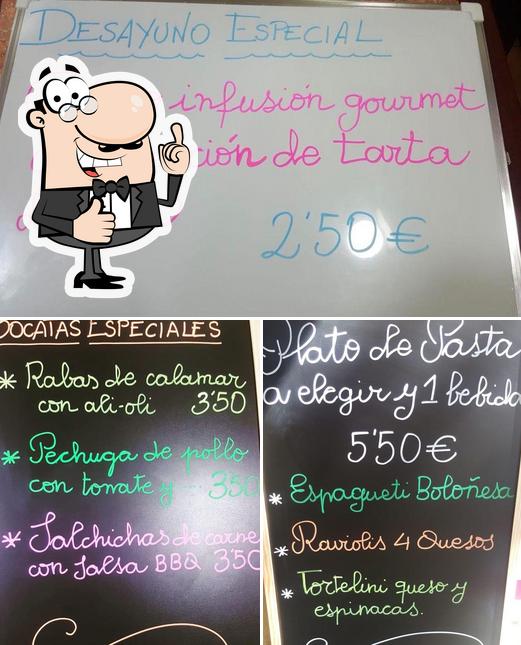 DESAYUNO ESPECIAL
infusión gourmet
ción de tarta
2'50€
BOCATAS ESPECIALES
* Rabas de calamar
con ali-oli 3'50
* Pechuga de pollo
con tomate y 350
* Salchichas de carne
con salsa BBQ 3'50
Plato de Pasta
a elegir y 1 bebida
5'50€
* Espagueti Boloñesa
* Raviolis 4 Quesos
* Tortelini queso y
espinacas.